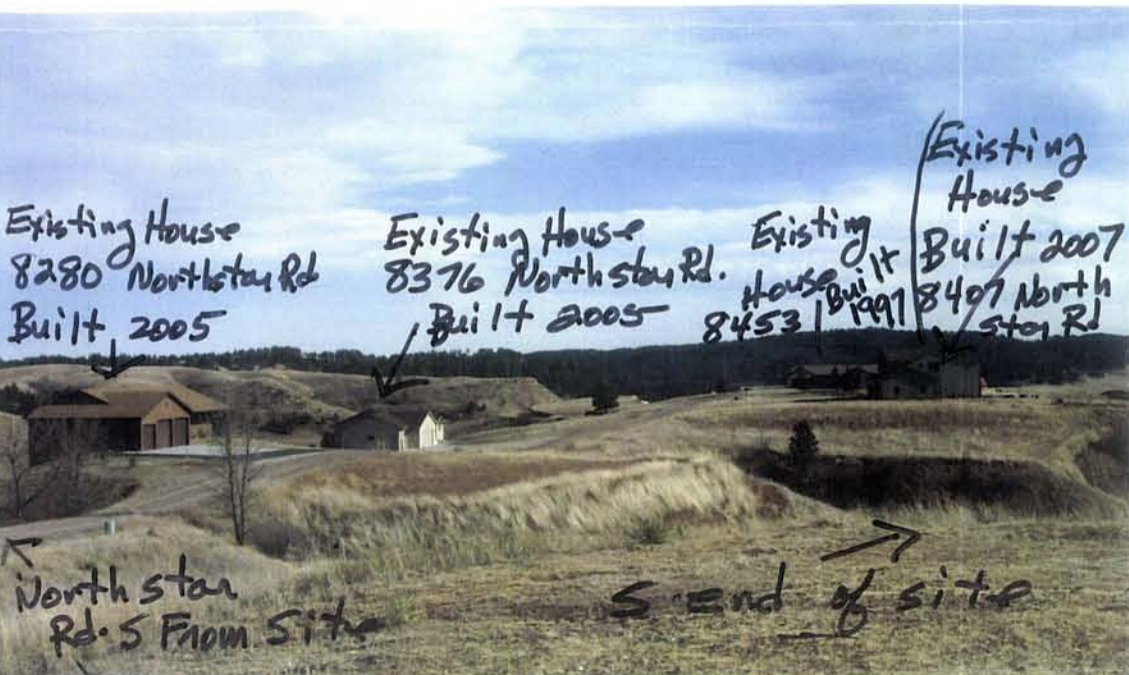 Existing House
8280 Northstar Rd
Built 2005
Existing House
8376 Northstar Rd.
Built 2005
Existing
House
8453
Built
1997
Existing
House
Built 2007
8407 North
star Rd
Northstar
Rd. S From Site
S end of site